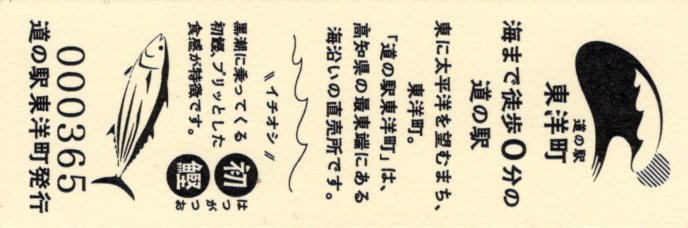 道の駅
東洋町
海まで徒歩0分の
道の駅
東に太平洋を望むまち、
東洋町。
「道の駅東洋町」は、
高知県の最東端にある
海沿いの直売所です。
\\ イチオシ //
初鰹
はつがつお
黒潮に乗ってくる
初鰹、プリッとした
食感が特徴です。
000365
道の駅東洋町発行